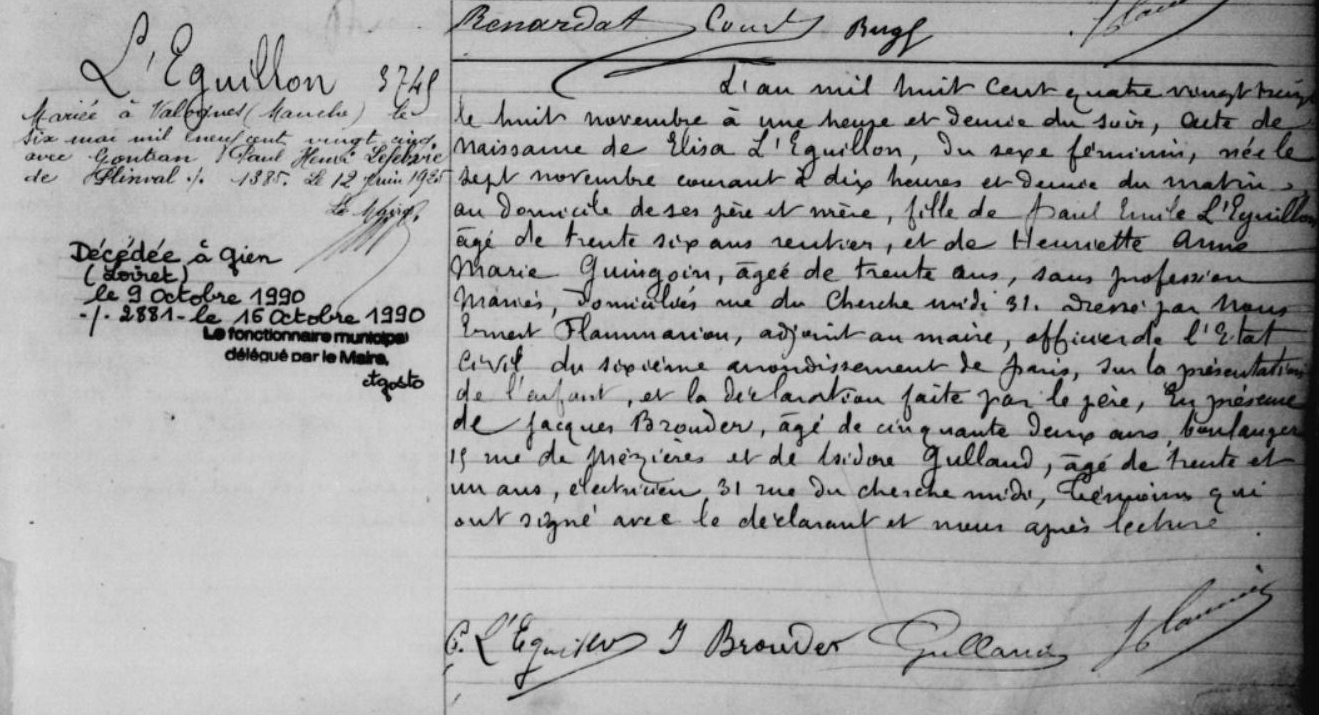 Renardat Court Bugf
L'Eguillon 3745
Mariée à Valognes (Manche) le
six mai mil neuf cent vingt cinq.
avec Gontran, Paul Henri Lefebvre
de Plinval ./. 1385. Le 12 Juin 1925
Le Maire,
Décédée à Gien
(Loiret)
le 9 Octobre 1990
-/. 2881 - le 16 Octobre 1990
Le fonctionnaire municipal
délégué par le Maire,
L'an mil huit cent quatre vingt treize
le huit novembre à une heure et demie du soir, acte de
naissance de Elisa L'Eguillon, du sexe féminin, née le
sept novembre courant à dix heures et demie du matin,
au domicile de ses père et mère, fille de Paul Emile L'Eguillon
âgé de trente six ans rentier, et de Henriette Anne
Marie Guingoin, âgée de trente ans, sans profession
Mariés, domiciliés rue du Cherche midi 31. Dressé par Nous
Ernest Flammarion, adjoint au maire, officier de l'Etat
Civil du sixième arrondissement de Paris, sur la présentation
de l'enfant, et la déclaration faite par le père, En présence
de Jacques Brouder, âgé de cinquante deux ans, boulanger
15 rue de Mézières et de Isidore Gulland, âgé de trente et
un ans, électricien, 31 rue du cherche midi, témoins qui
ont signé avec le déclarant et nous après lecture.
P. L'Eguillon J Brouder Gulland